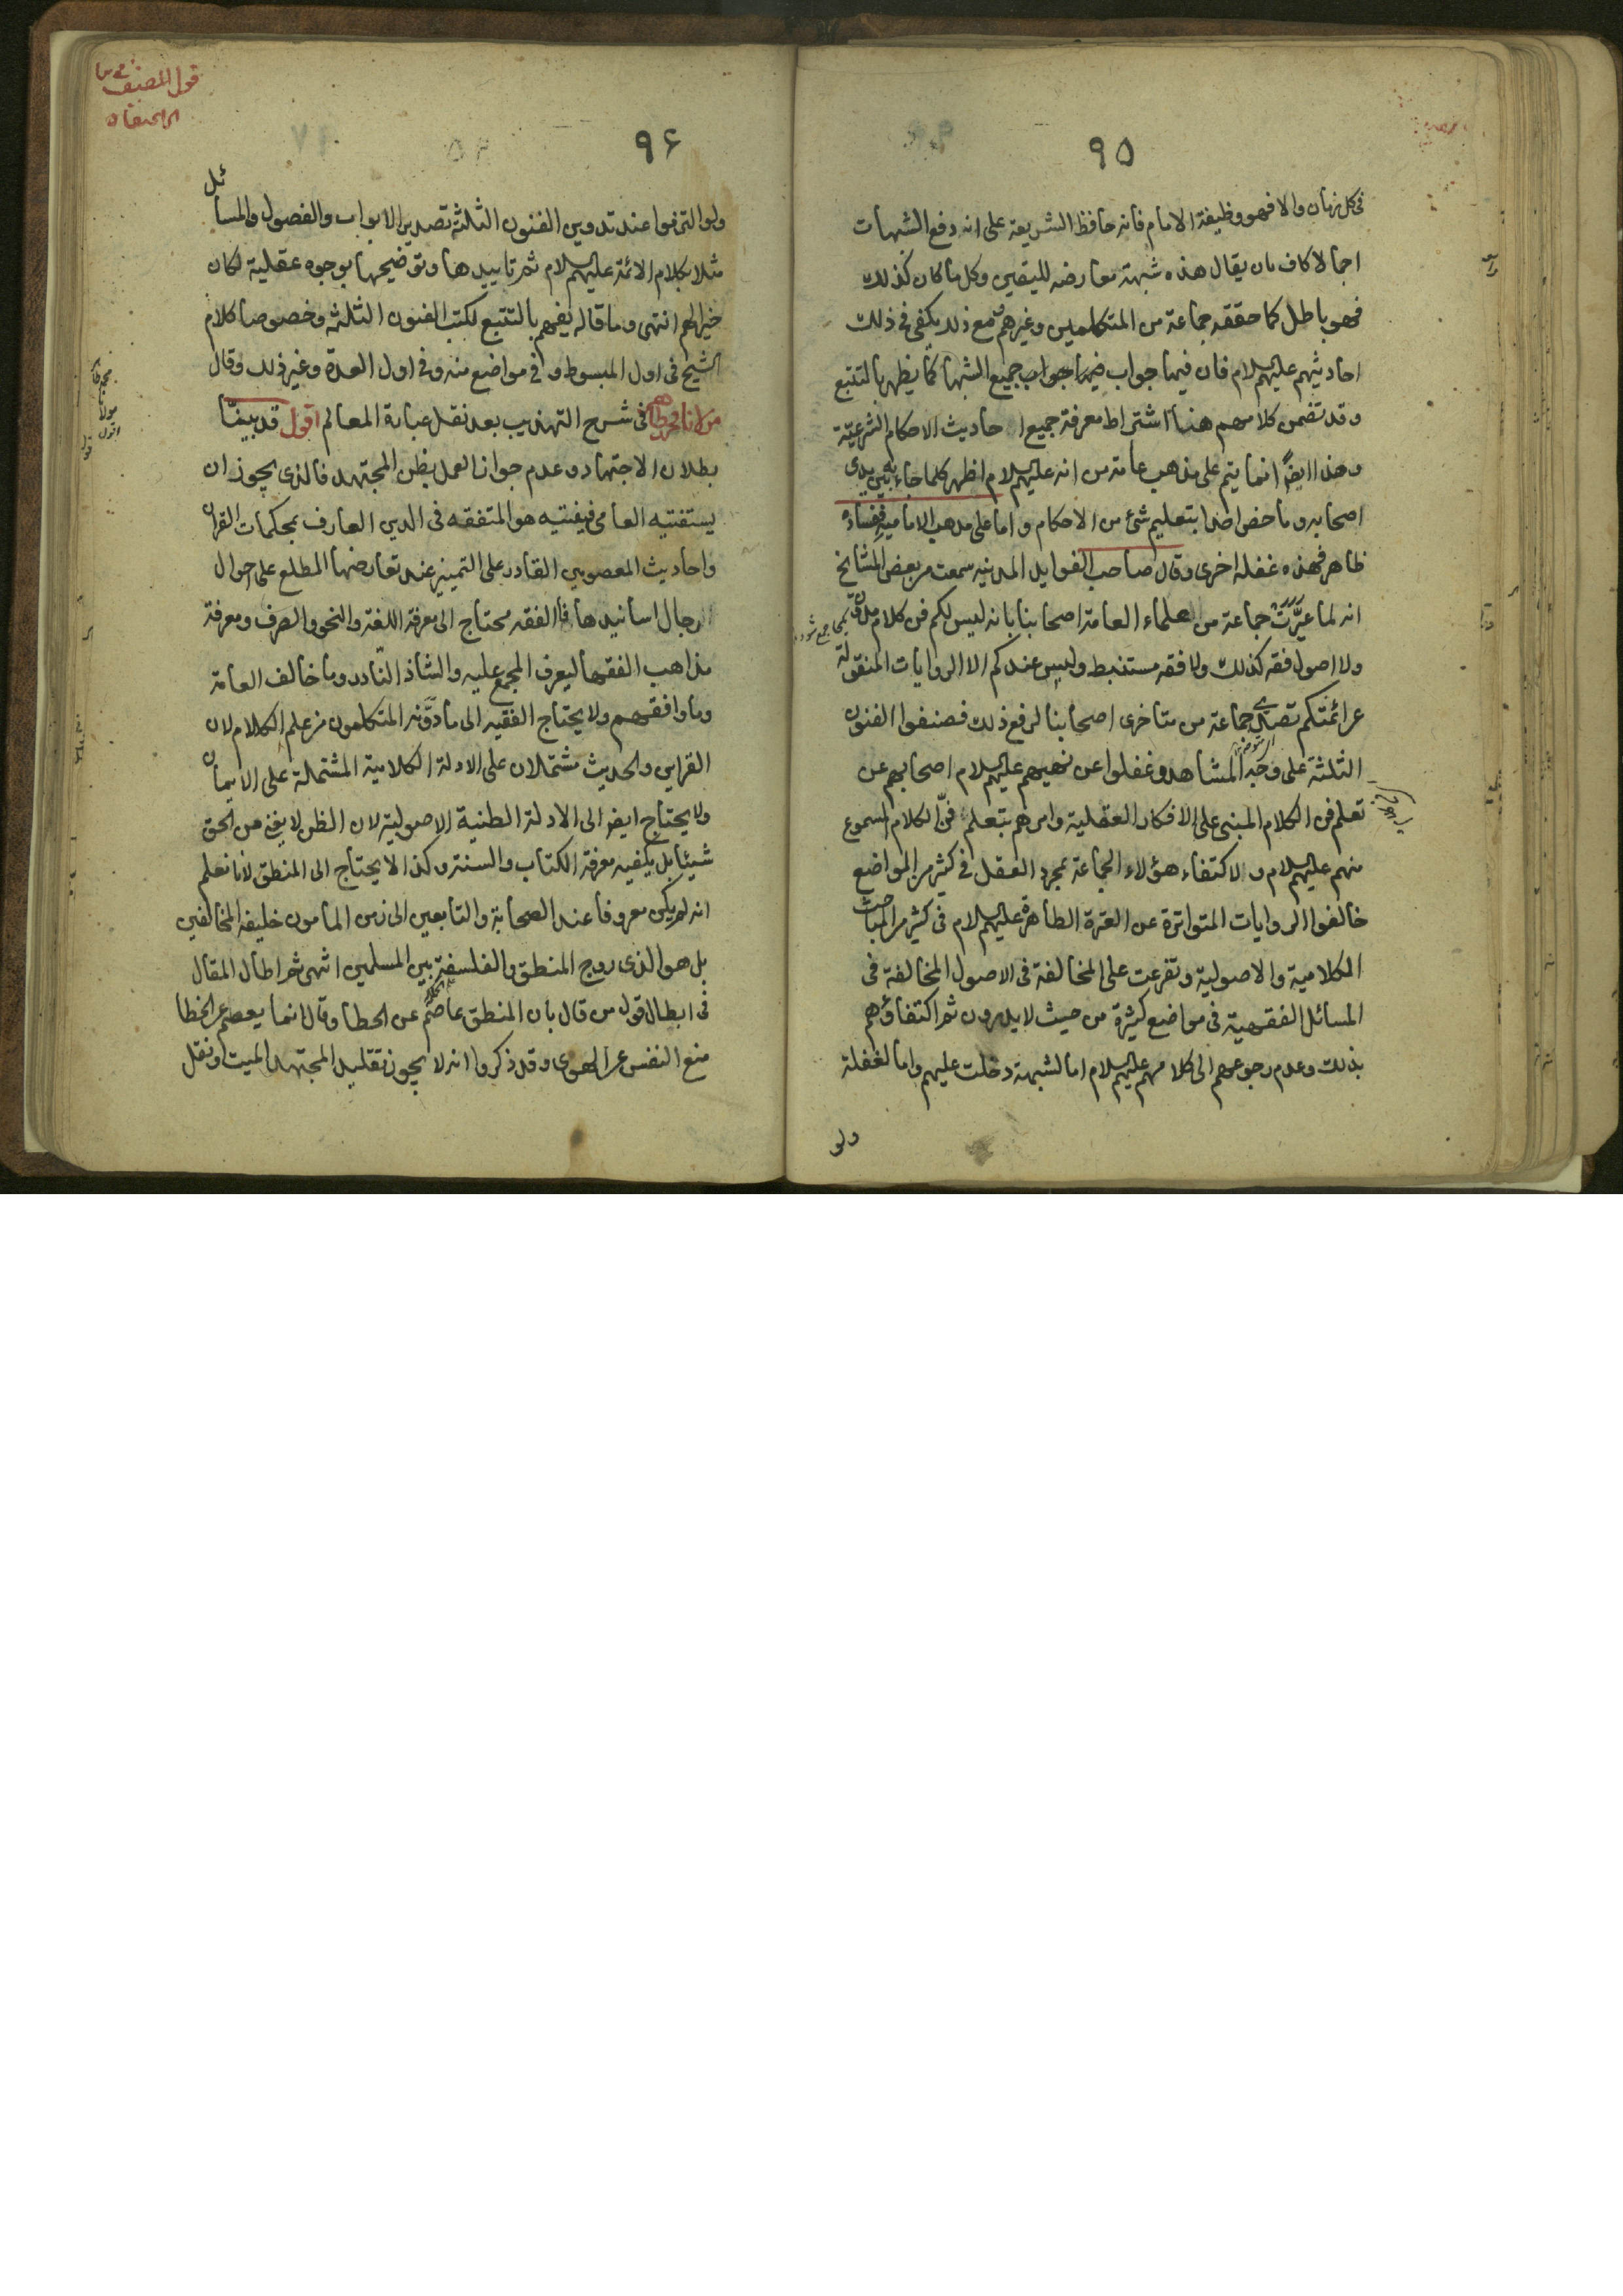 ٩٥
فى كل زمان والا فهو وظيفة الامام فانه حافظ الشريعة على انه دفع الشبهات
اجمالا كاف بان يقال هذه شبهة معارضه لليقين وكل ما كان كذلك
فهو باطل كما حققه جماعة من المتكلمين وغيرهم مع ذلك يكفى فى ذلك
احاديثهم عليهم السلام فان فيها جواب جميع الشبهات كما يظهر بالتتبع
وقد تضمن كلامهم هنا اشتراط معرفة جميع احاديث الاحكام الشرعية
وهذا ايضا انما يتم على مذهب عامة من انه عليهم السلام اظهر كلما جاء به بين يدى
اصحابه وما خص احدا بتعليم شئ من الاحكام واما على مذهب الامامية ففساده
ظاهر فهذه غفلة اخرى وقال صاحب الفوايد المدنية سمعت من بعض المشايخ
انه لما عيّرت جماعة من علماء العامة اصحابنا بانه ليس لكم فن كلام مدون
ولا اصول فقه كذلك ولا فقه مستنبط وليس عندكم الا الروايات المنقولة
عن ائمتكم تصدى جماعة من متاخرى اصحابنا لرفع ذلك فصنفوا الفنون
الثلثة على وجه المشاهد وغفلوا عن نهيهم عليهم السلام اصحابهم عن
تعلم فن الكلام المبنى على الافكار العقلية وامرهم بتعلم فنّ الكلام المسموع
منهم عليهم السلام والاكتفاء هؤلاء الجماعة بمجرد العقل فى كثير من المواضع
خالفوا الروايات المتواترة عن العترة الطاهرة عليهم السلام فى كثير من المباحث
الكلامية والاصولية وتفرعت على المخالفة فى الاصول المخالفة فى
المسائل الفقهية فى مواضع كثيرة من حيث لا يدرون ثم اكتفاؤهم
بذلك وعدم رجوعهم الى كلامهم عليهم السلام اما لشبهة دخلت عليهم واما لغفلة
ولو
قول المصنف
٩۶
ولو التزموا عند تدوين الفنون الثلثة تصدير الابواب والفصول والمسائل
مثلا بكلام الائمة عليهم السلام ثم تاييدها وتوضيحها بوجوه عقلية لكان
خيرا لهم انتهى وما قاله يفهم بالتتبع لكتب الفنون الثلثة وخصوصا كلام
الشيخ فى اول المبسوط و فى مواضع منه وفى اول العدة وغير ذلك وقال
مولانا محمد طاهر فى شرح التهذيب بعد نقل عبارة المعالم اقول قد بينّا
بطلان الاجتهاد وعدم جواز العمل بظن المجتهد فالذى يجوز ان
يستفتيه العامى فيفتيه هو المتفقه فى الدين العارف بمحكمات القران
واحاديث المعصومين القادر على التمييز عند تعارضها المطلع على احوال
الرجال اسانيدها فالفقه محتاج الى معرفة اللغة والنحو والصرف ومعرفة
مذاهب الفقها ليعرف المجمع عليه والشاذ النّادر وما خالف العامة
وما وافقهم ولا يحتاج الفقيه الى ما دوّنه المتكلمون من علم الكلام لان
القران والحديث مشتملان على الادلة الكلامية المشتملة على الايمان
ولا يحتاج ايضا الى الادلة الظنية الاصولية لان الظن لا يغنى من الحق
شيئا بل يكفيه معرفة الكتاب والسنة وكذا لا يحتاج الى المنطق لانا نعلم
انه لم يكن معروفا عند الصحابة والتابعين الى زمن المامون خليفة المخالفين
بل هو الذى روج المنطق والفلسفة بين المسلمين انتهى ثم اطال المقال
فى ابطال قول من قال بان المنطق عاصم عن الخطا وقال انما يعصم عن الخطا
منع النفس عن الهوى وقد ذكروا انه لا يجوز تقليد المجتهد الميت ونقل